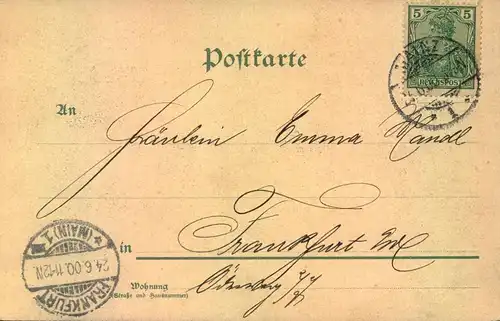 5 5
REICHSPOST
MAINZ
1
Postkarte
An
Fräulein Emma Mandl
in Frankfurt
Wohnung
(Straße und Hausnummer)
FRANKFURT
24.6.00.11-12N.
* (MAIN) 1